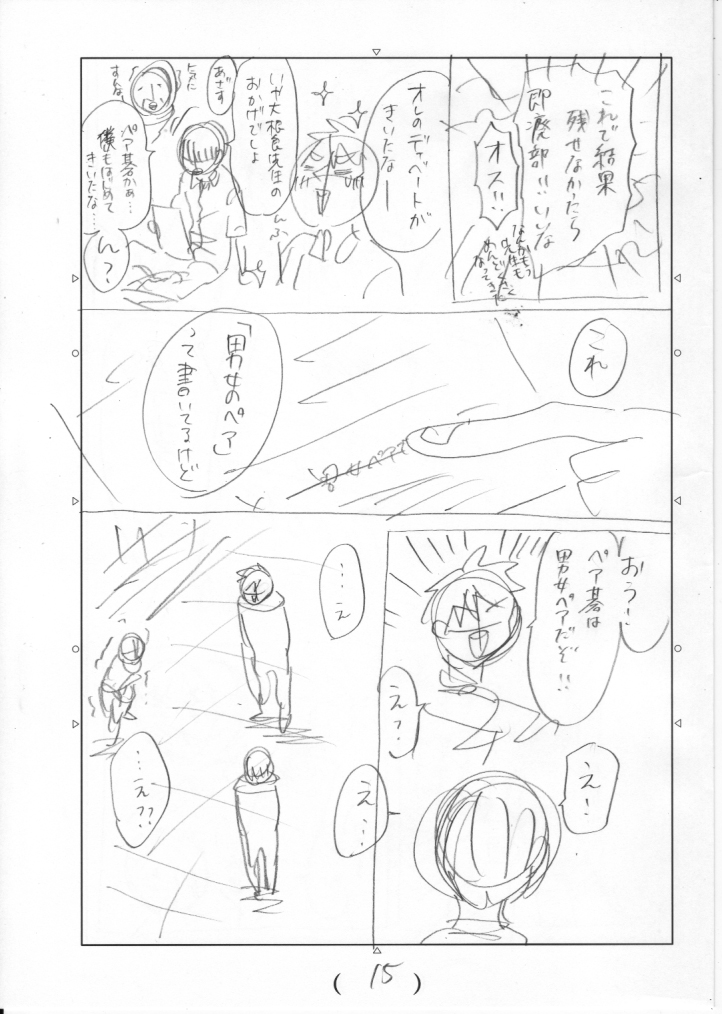 これで結果
残せなかたら
即廃部!!いいな
オス!!
なんかもう
先生も
めんどくさく
なってきた
オレのディベートが
きいたなー
いや大根食先生の
おかげでしょ
あざす
ペア碁かぁ…
僕もはじめて
きいたな…
ん?
これ
「男女のペア」
って書いてるけど
男女ペアで
おう!
ペア碁は
男女ペアだぞ!!
え?
え!
…え
え…
…え??
(15)